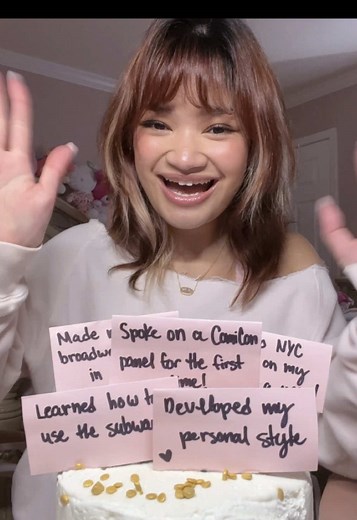 Made
broadw
in
Spoke on a ComiCon
panel for the first
time!
NYC
on my
Learned how t
use the subwa
Developed my
personal style